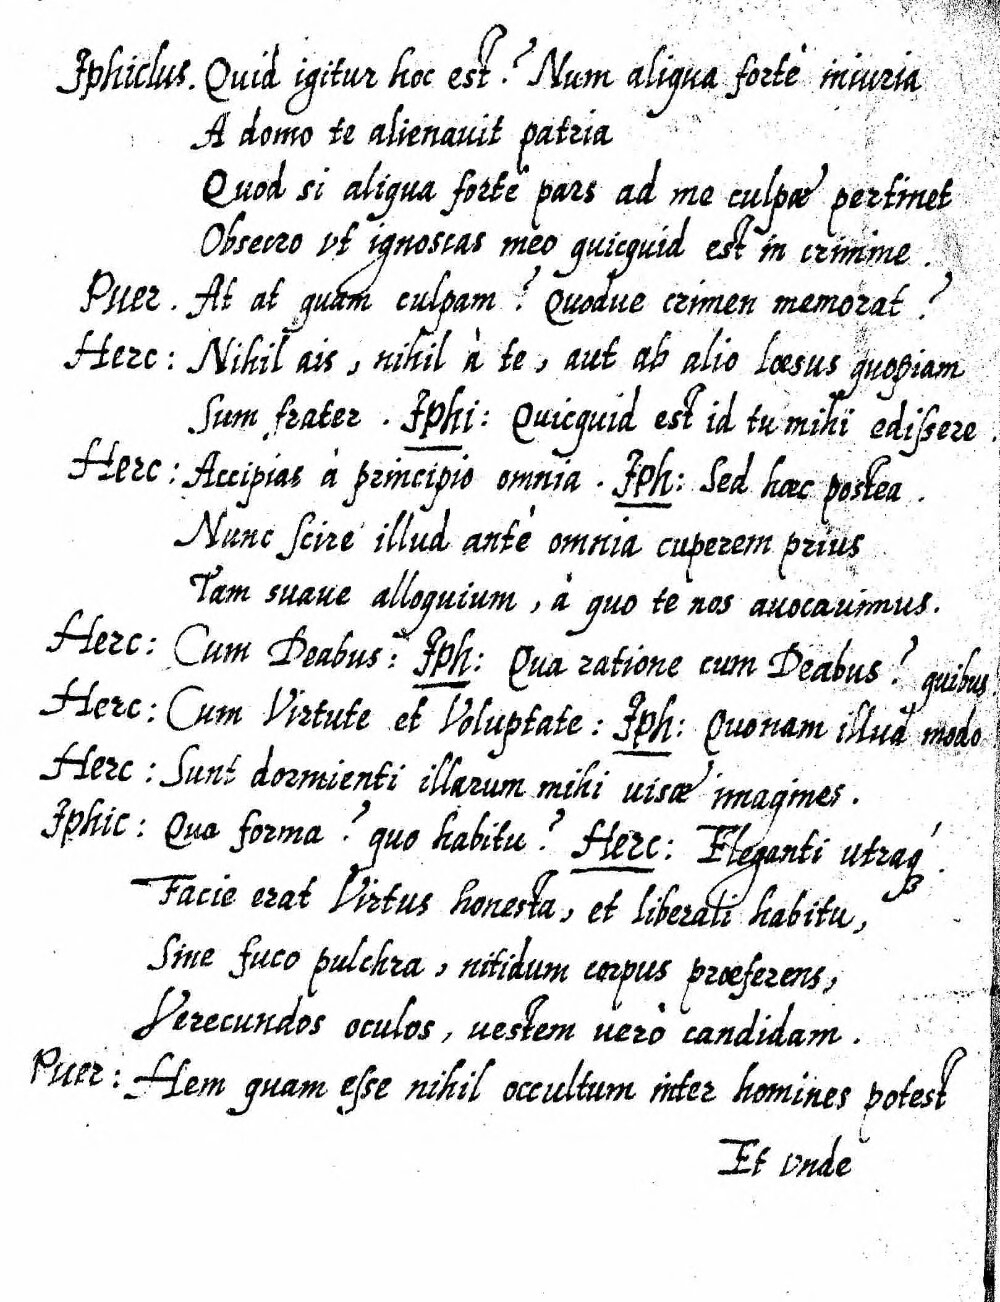 Iphiclus. Quid igitur hoc est? Num aliqua fortè iniuria
A domo te alienauit patria
Quod si aliqua fortè pars ad me culpæ pertinet
Obsecro vt ignoscas meo quicquid est in crimine.
Puer. At at quam culpam? Quodue crimen memorat?
Herc: Nihil ais, nihil à te, aut ab alio læsus quopiam
Sum frater. Iphi: Quicquid est id tu mihi edissere.
Herc: Accipias à principio omnia. Iph: Sed hæc postea.
Nunc scire illud antè omnia cuperem prius
Tam suaue alloquium, à quo te nos auocauimus.
Herc: Cum Deabus: Iph: Qua ratione cum Deabus? quibus
Herc: Cum Virtute et Voluptate: Iph: Quonam illud modo
Herc: Sunt dormienti illarum mihi uisæ imagines.
Iphic: Qua forma? quo habitu? Herc: Eleganti utraqꝫ.
Facie erat Virtus honesta, et liberali habitu,
Sine fuco pulchra, nitidum corpus præferens,
Verecundos oculos, uestem uerò candidam.
Puer: Hem quam esse nihil occultum inter homines potest
Et vnde